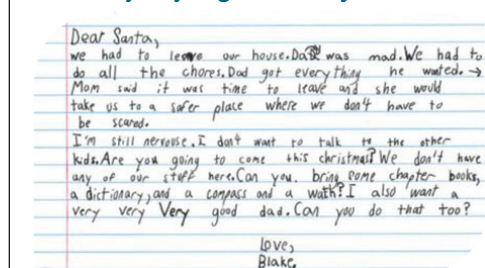 Dear Santa,
we had to leave our house. Dad was mad. We had to
do all the chores. Dad got everything he wanted. →
Mom said it was time to leave and she would
take us to a safer place where we don't have to
be scared.
I'm still nervouse. I don't want to talk to the other
kids. Are you going to come this christmas? We don't have
any of our stuff here. Can you bring some chapter books,
a dictionary, and a compass and a wath? I also want a
very very Very good dad. Can you do that too?
love,
Blake.